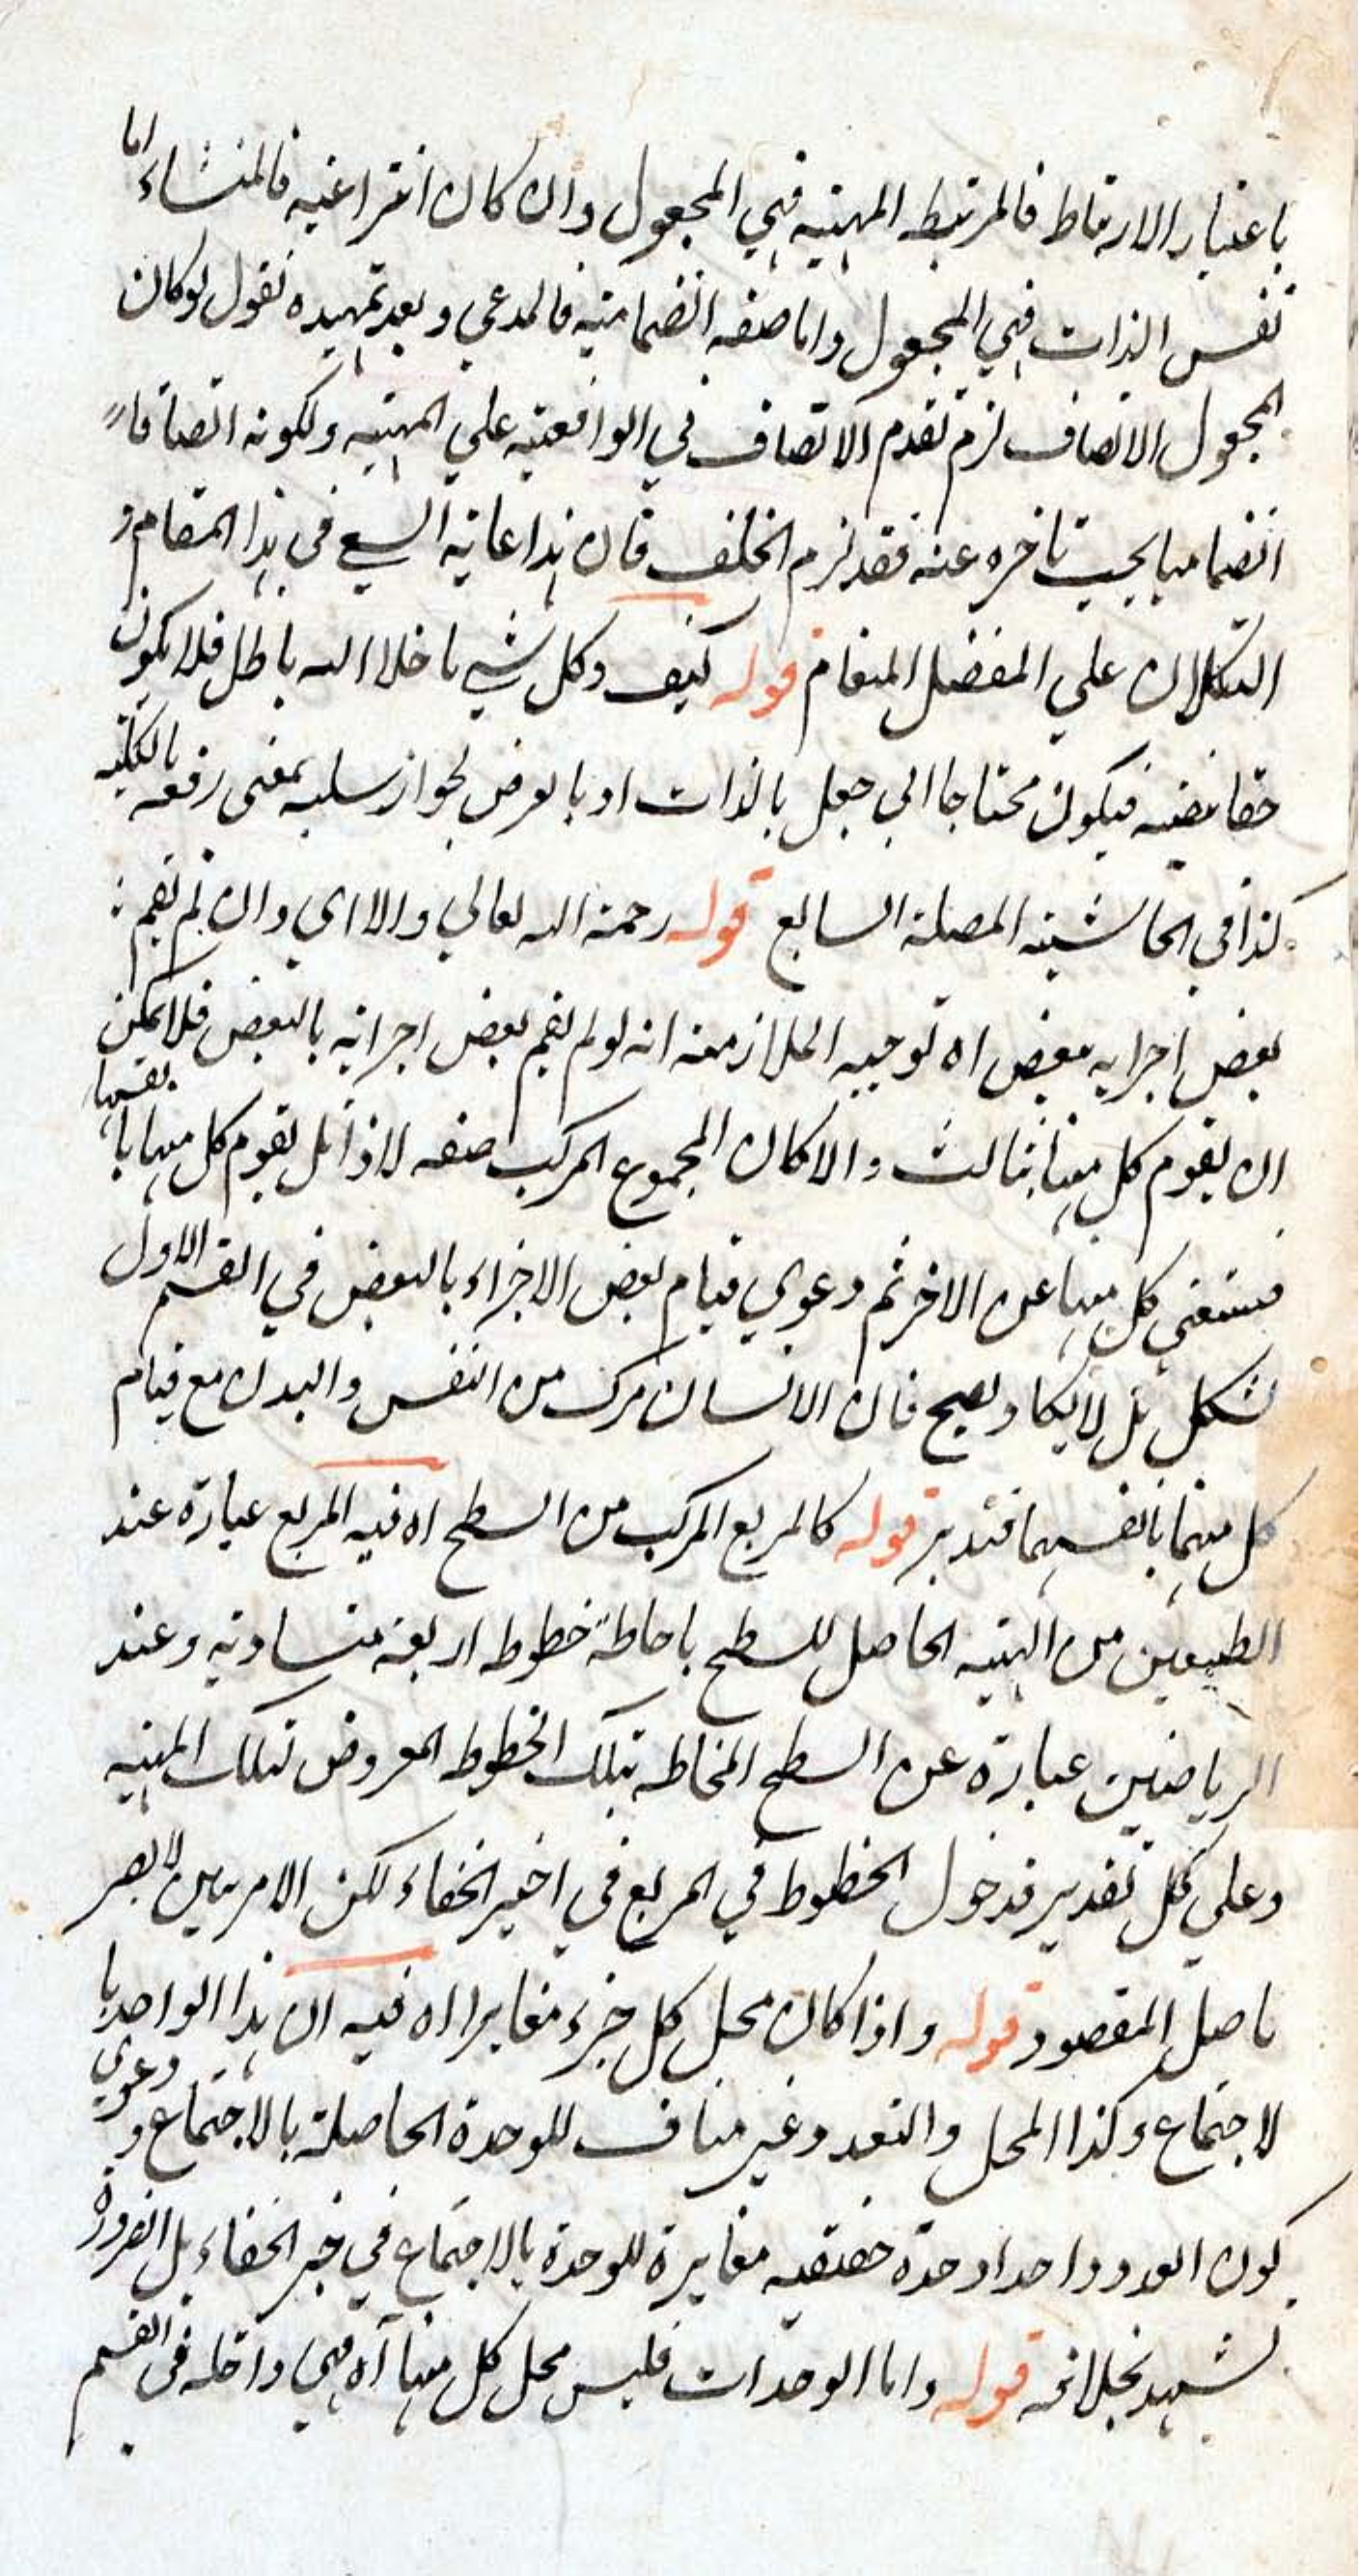 باعتبار الارتباط فالمرتبط المهية فهي المجعول وان كان انتزاعية فالمنشاء اما
نفس الذات فهي المجعول واما صفة انضمامية فالمدعي وبعد تمهيده نقول لو كان
المجعول الاتصاف لزم تقدم الاتصاف في الواقعية علي المهية ولكونه اتصافا
انضماميا يجب تاخره عنه فقد لزم الخلف فان هذا غاية السعي في هذا المقام و
التكلان علي المفضل المنعام قوله كيف وكل شي ما خلا الله باطل فلا يكون
حقا بنفسه فيكون محتاجا الي جعل بالذات او بالعرض لجواز سلبه بمعنى رفعه بالكلية
كذا في الحاشية قوله رحمة الله تعالي والا اي وان لم يقم
بعض اجزايه ببعض اه توجيه الملازمة انه لو لم يقم بعض اجزائه بالبعض فلا يمكن
ان يقوم كل منها بثالث والا كان المجموع المركب صفة لا ذا بل يقوم كل منها با نفسها
فيستغني كل منها عن الاخر ثم دعوي قيام بعض الاجزاء بالبعض في القسم الاول
تشكل بل لا يكاد يصح فان الانسان مركب من النفس والبدن مع قيام
كل منهما بانفسهما فتدبر قوله كالمربع المركب من السطح اه فيه المربع عبارة عند
الطبيعين من الهيئة الحاصل للسطح باحاطة خطوط اربعة متساوية وعند
الرياضيين عبارة عن السطح المحاطة بتلك الخطوط المعروض لتلك الهيئة
وعلي كل تقدير فدخول الخطوط في المربع في اخير الخفاء لكن الامر بين لا يضر
باصل المقصود قوله واذا كان محل كل جزء مغايرا اه فيه ان هذا الواحد با
لاجتماع وكذا المحل والتعدد غير مناف للوحدة الحاصلة بالاجتماع و دعوي
كون العدد واحدا وحدة حقيقية مغايرة للوحدة بالاجتماع في خير الخفاء بل الضرورة
تشهد بخلافه قوله واما الوحدات فليس محل كل منها اه فهي داخلة في القسم